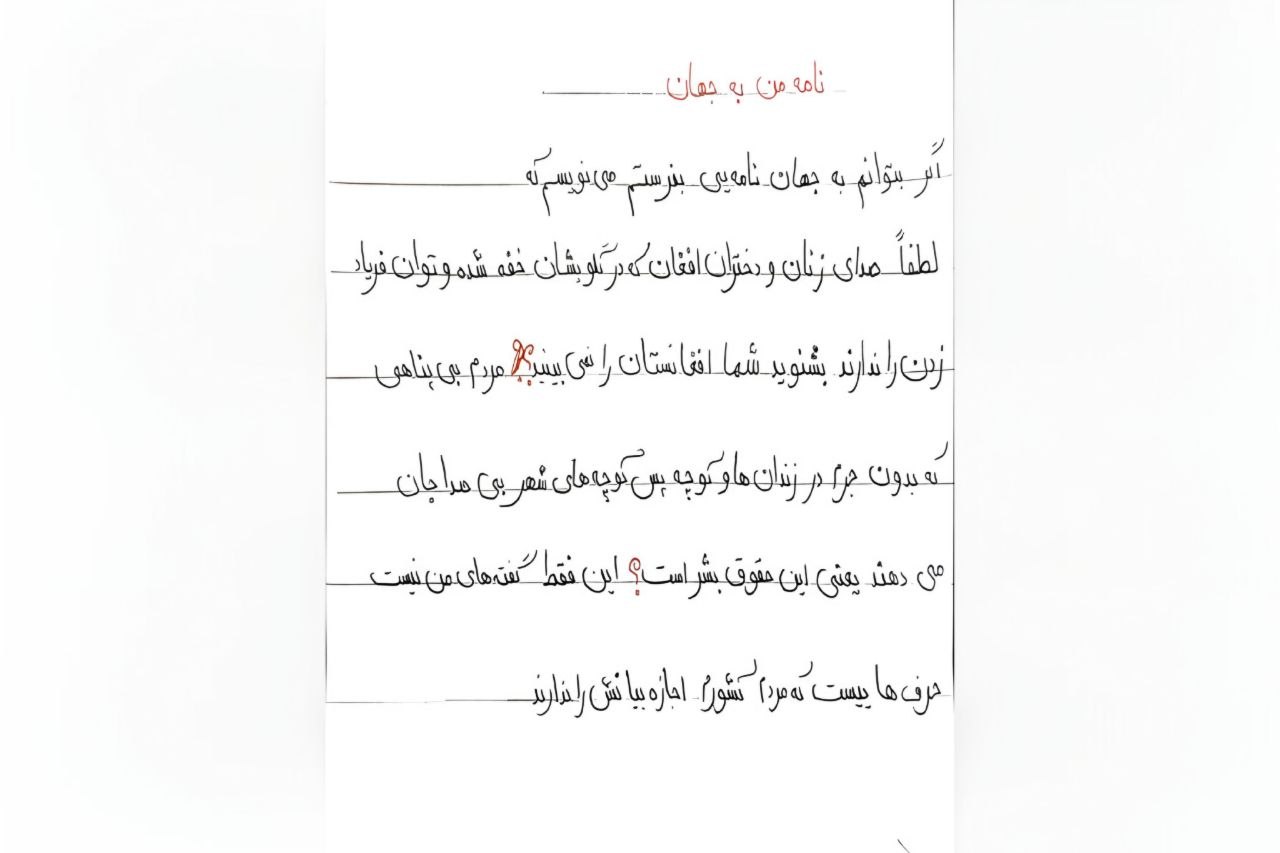 نامه من به جهان
اگر بتوانم به جهان نامه‌یی بفرستم می‌نویسم که
لطفاً صدای زنان و دختران افغان که در گلویشان خفه شده و توان فریاد
زدن را ندارند بشنوید شما افغانستان را نمی‌بینید؟ مردم بی پناهی
که بدون جرم در زندان ها و کوچه پس کوچه‌های شهر بی صدا جان
می دهند یعنی این حقوق بشر است؟ این فقط گفته‌های من نیست
حرف ها ییست که مردم کشورم اجازه بیانش را ندارند